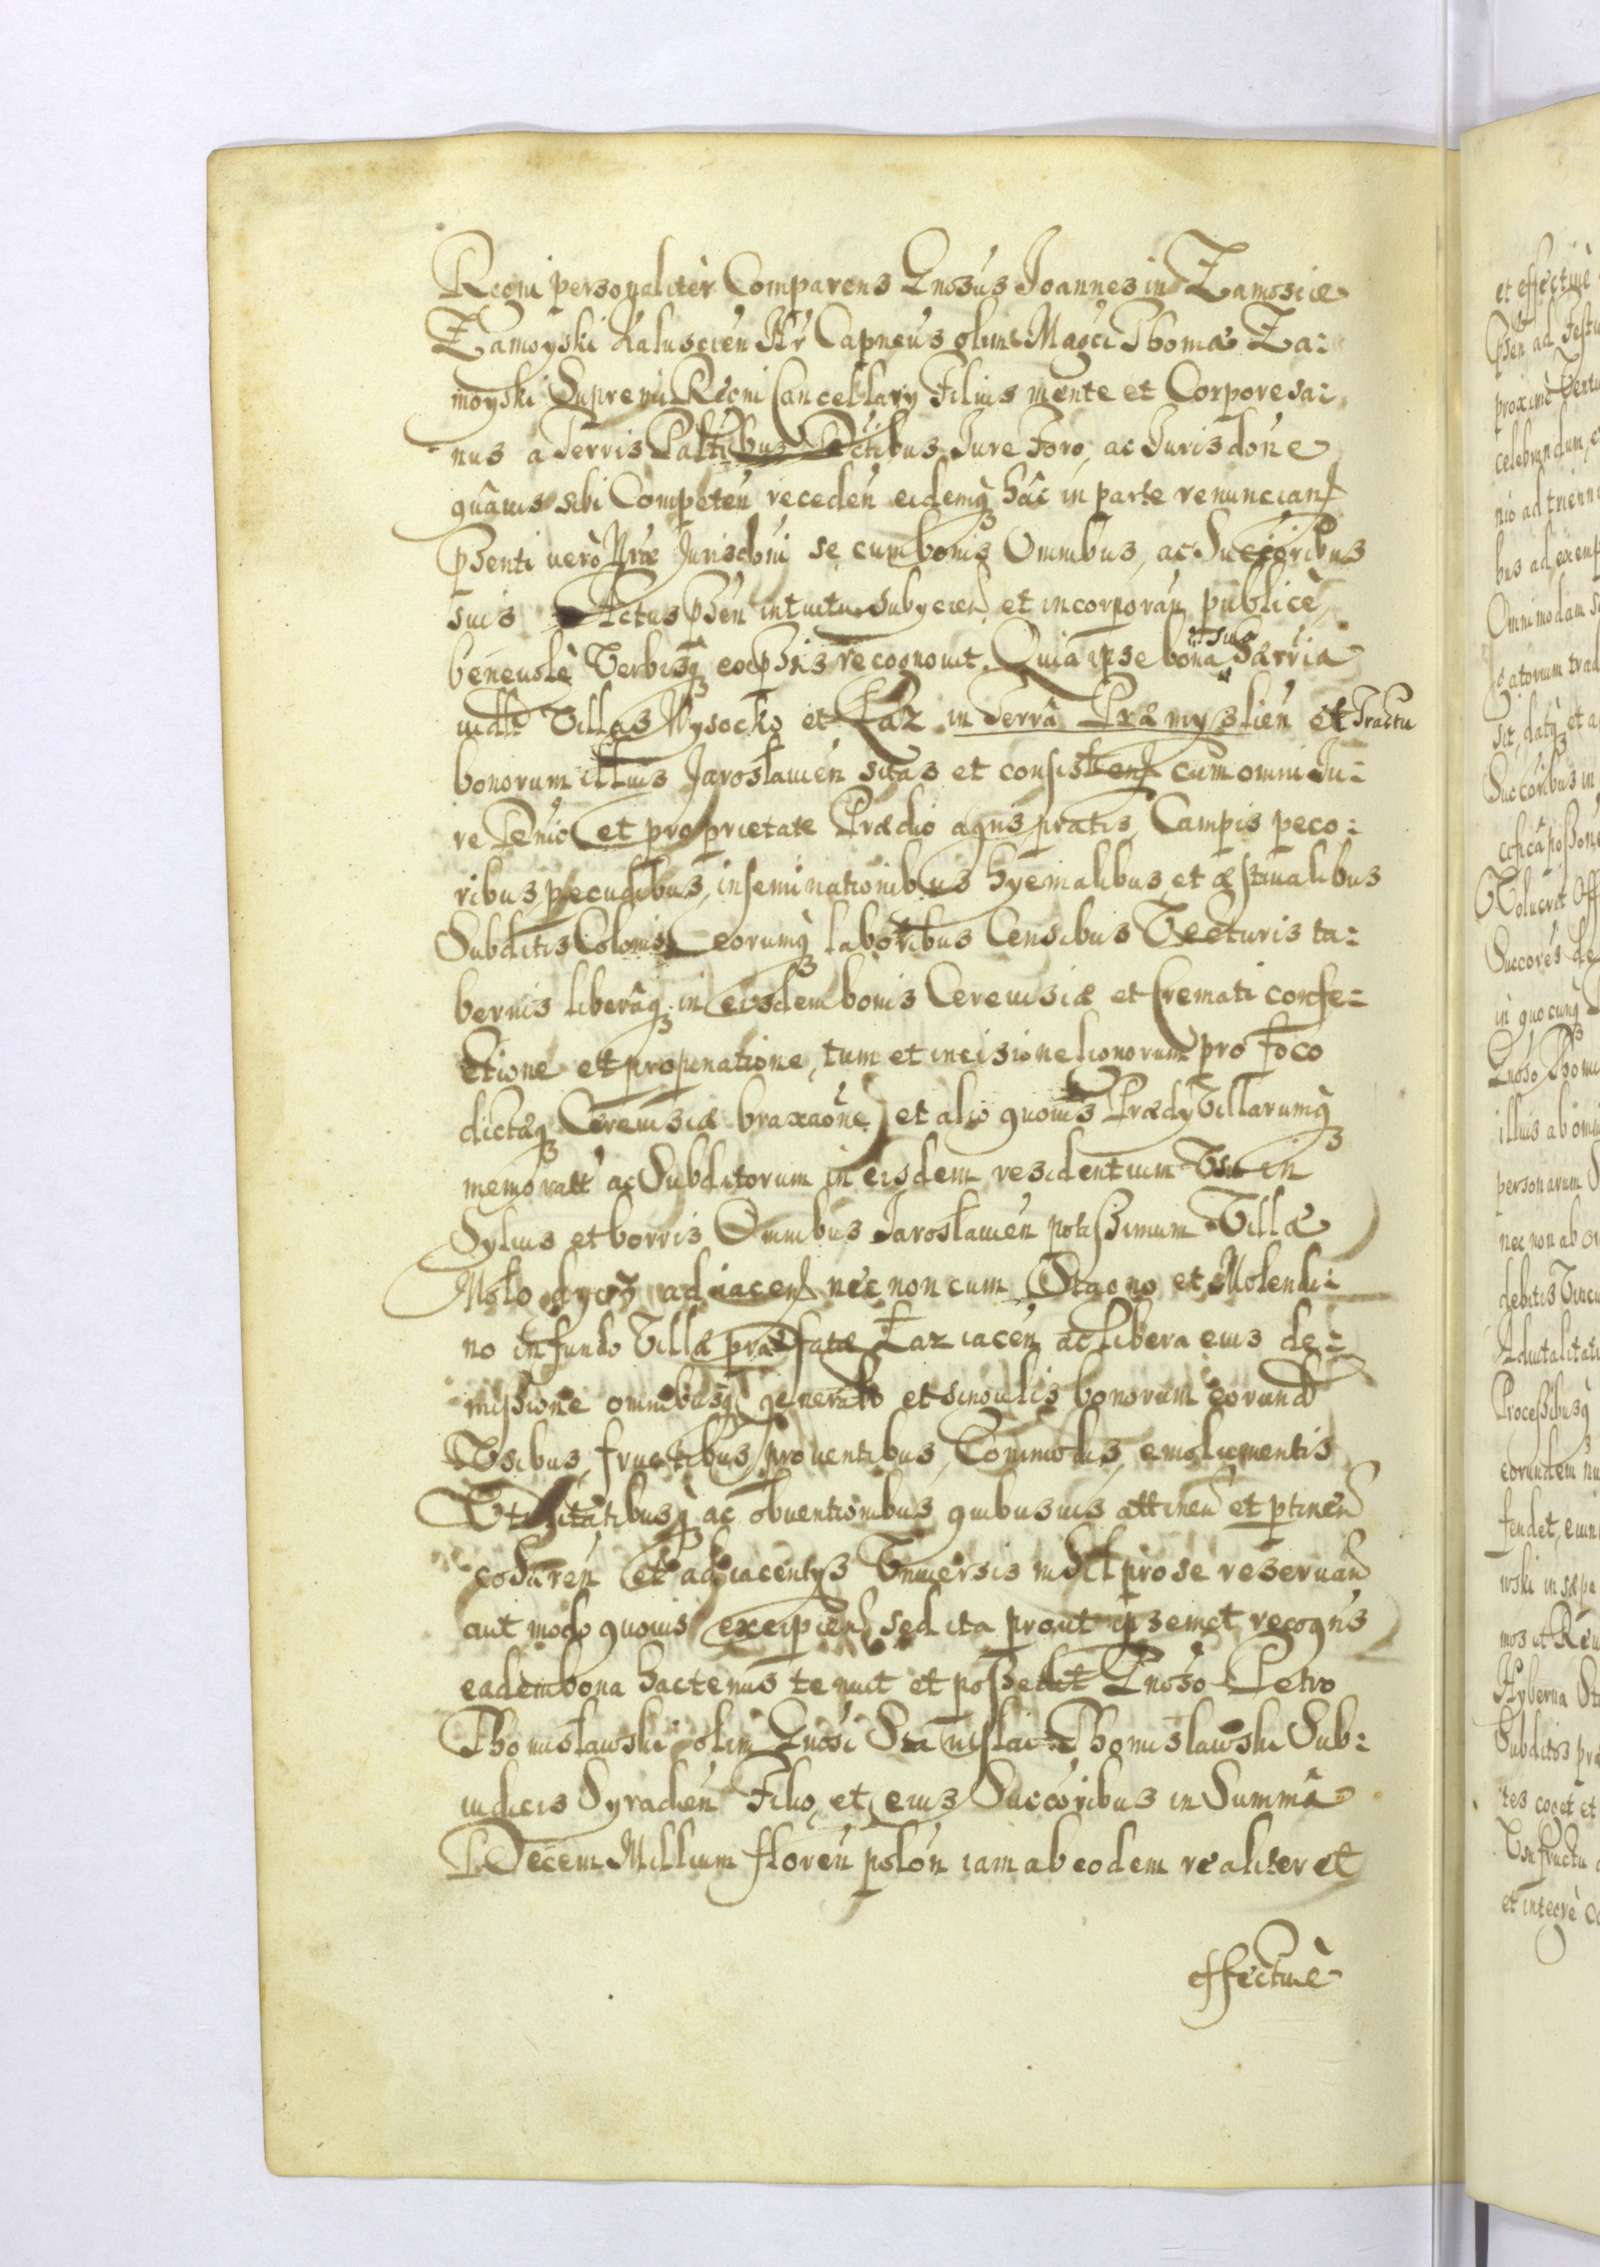 Regni personaliter Comparens Gnosus Joannes in Zamoscie
Zamoyski Kaluscień Capneus olim Magci Thomæ Za:
moyski Supremi Regni Cancellary Filius mente et Corpore sa:
nus a Terris Palatibus Dictibus Jure Foro, ac Jurisdone
quâuis sibi Competeń recedeń eidemq hâc in parte renuncian
Pnsenti uerò Nræ Jurisdoni se cum bonis Omnibus, ac Succoribus
suis Actus Pnseń intuitu subycień et incorporań publicè
beneuolè Verbisq expssis recognouit. Quia ipse bona et sua hærria
uidlt Villas Wysocko et Łaz in Terrâ Præmyslień et Tractu
bonorum illius Jarosłauień sitas et consisten cum omni Ju:
re Dnio et proprietate Prædio agris pratis, Campis peco:
ribus pecudibus, inseminationibus hyemalibus et æstiualibus
Subditis Colonis eorumq laboribus Censibus Vecturis ta:
bernis liberâq in eisdem bonis Cereuisiæ et Cremati confe:
ctione et propinatione, tum et incisione lignorum pro foco
dictæq Cereuisiæ braxaône, et alio quouis Prædy Villarumq
memoratt ac Subditorum in eisdem residentium Vsu in
Syluis et borris Omnibus Jarosłauień potissimum Villæ
Mołodycz adiacen necnon cum Stagno et Molendi:
no in fundo Villæ præfatæ Łaz iaceń ac libera eius de:
missione omnibusq generalr et singulis bonorum eorund
Vsibus, fructibus, prouentibus, Commodis, emolumentis
Vtilitatibusq ac obuentionibus quibusuis attineń et ptineń
coħæreń et adiacentys Vniuersis nihil pro se reseruań
aut modo quouis excipień sed ita prout ipsemet recogns
eadem bona hactenus tenuit et possedit Gnoso Petro
Thomisławski olim Gnosi Stanislai Thomisławski Sub:
iudicis Syradień Filio, et eius Succoribus in Summâ
Decem Millium floreń poloń iam ab eodem realiter et
effectiuè